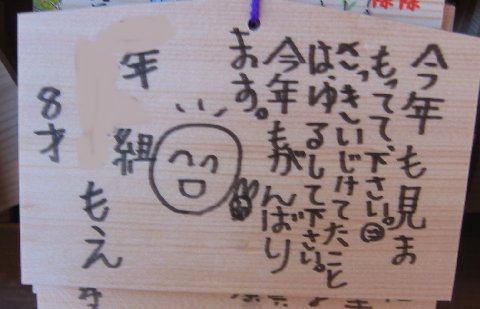 今年も見ま
もってて、下さい。
さっき、いじけてたこと
は、ゆるして下さい。
今年もがんばり
ます。
年 組
もえ
8才